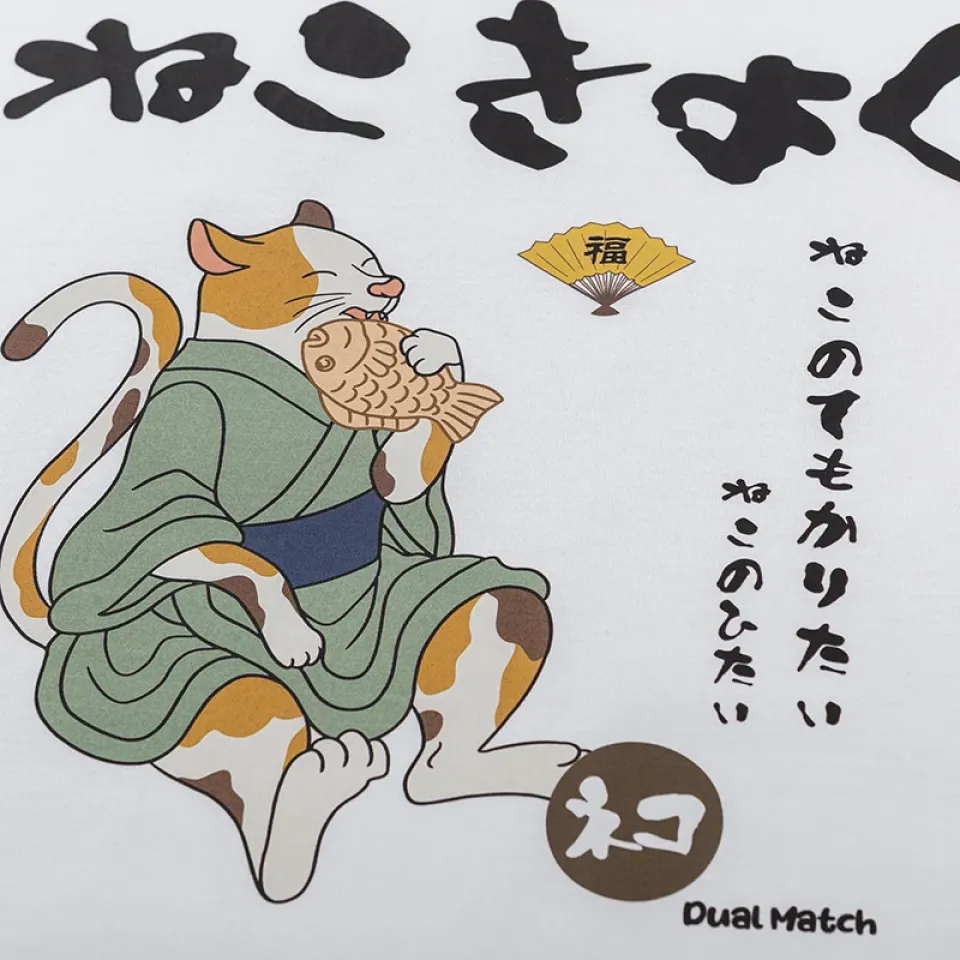 ねこき
福
ねこのてもかりたい
ねこのひたい
ネコ
Dual Match